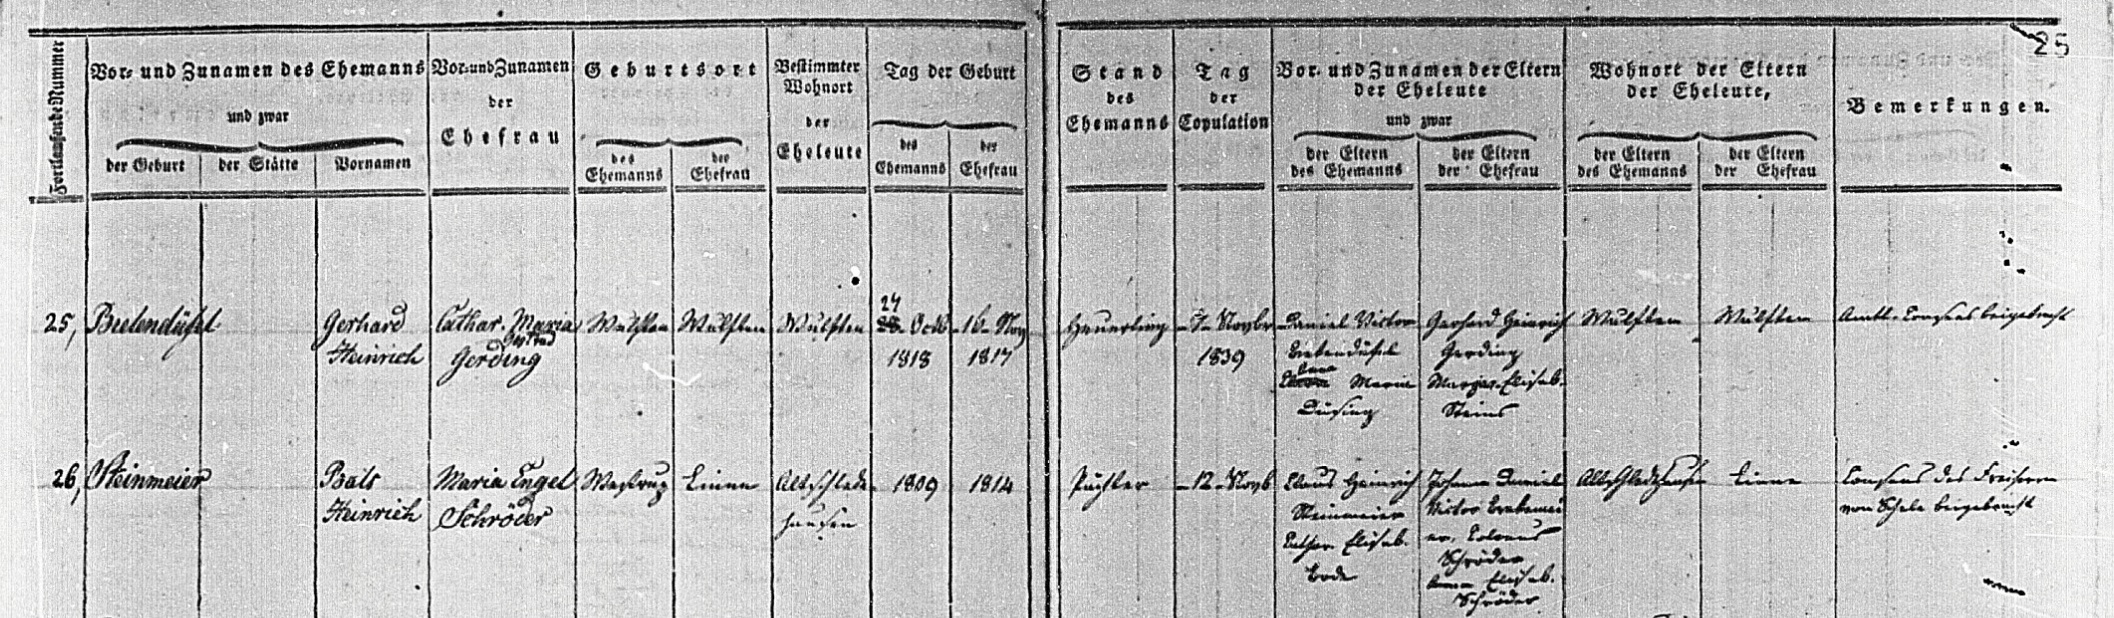 25
Fortlaufende Nummer
Vor- und Zunamen des Ehemanns
und zwar
der Geburt
der Stätte
Vornamen
Vor- und Zunamen
der
Ehefrau
Geburtsort
des
Ehemanns
der
Ehefrau
Bestimmter
Wohnort
der
Eheleute
Tag der Geburt
des
Ehemanns
der
Ehefrau
Stand
des
Ehemanns
Tag
der
Copulation
Vor- und Zunamen der Eltern
der Eheleute
und zwar
der Eltern
des Ehemanns
der Eltern
der Ehefrau
Wohnort der Eltern
der Eheleute,
der Eltern
des Ehemanns
der Eltern
der Ehefrau
Bemerkungen.
25,
Gerhard
Heinrich
Cathar. Maria
Gertrud
Gerding
Wulften
Wulften
Wulften
24
Octb
1818
16. Nov
1817
Heuerling
7. Novbr
1839
Daniel Victor
Anna Maria
Düsing
Gerhard Heinrich
Gerding
Margar. Elisab.
Steins
Wulften
Wulften
Amtl. Consens beigebracht
26,
Steinmeier
Balt
Heinrich
Maria Engel
Schröder
Westrup
Linne
Altschlede
hausen
1809
1814
Pächter
12. Novb
Claus Heinrich
Steinmeier
Cathar. Elisab.
Bode
Johann Daniel
Victor
Colonus
Schröder
Anna Elisab.
Schröder
Altschledehausen
Linne
Consens des Freiherrn
von Schele beigebracht